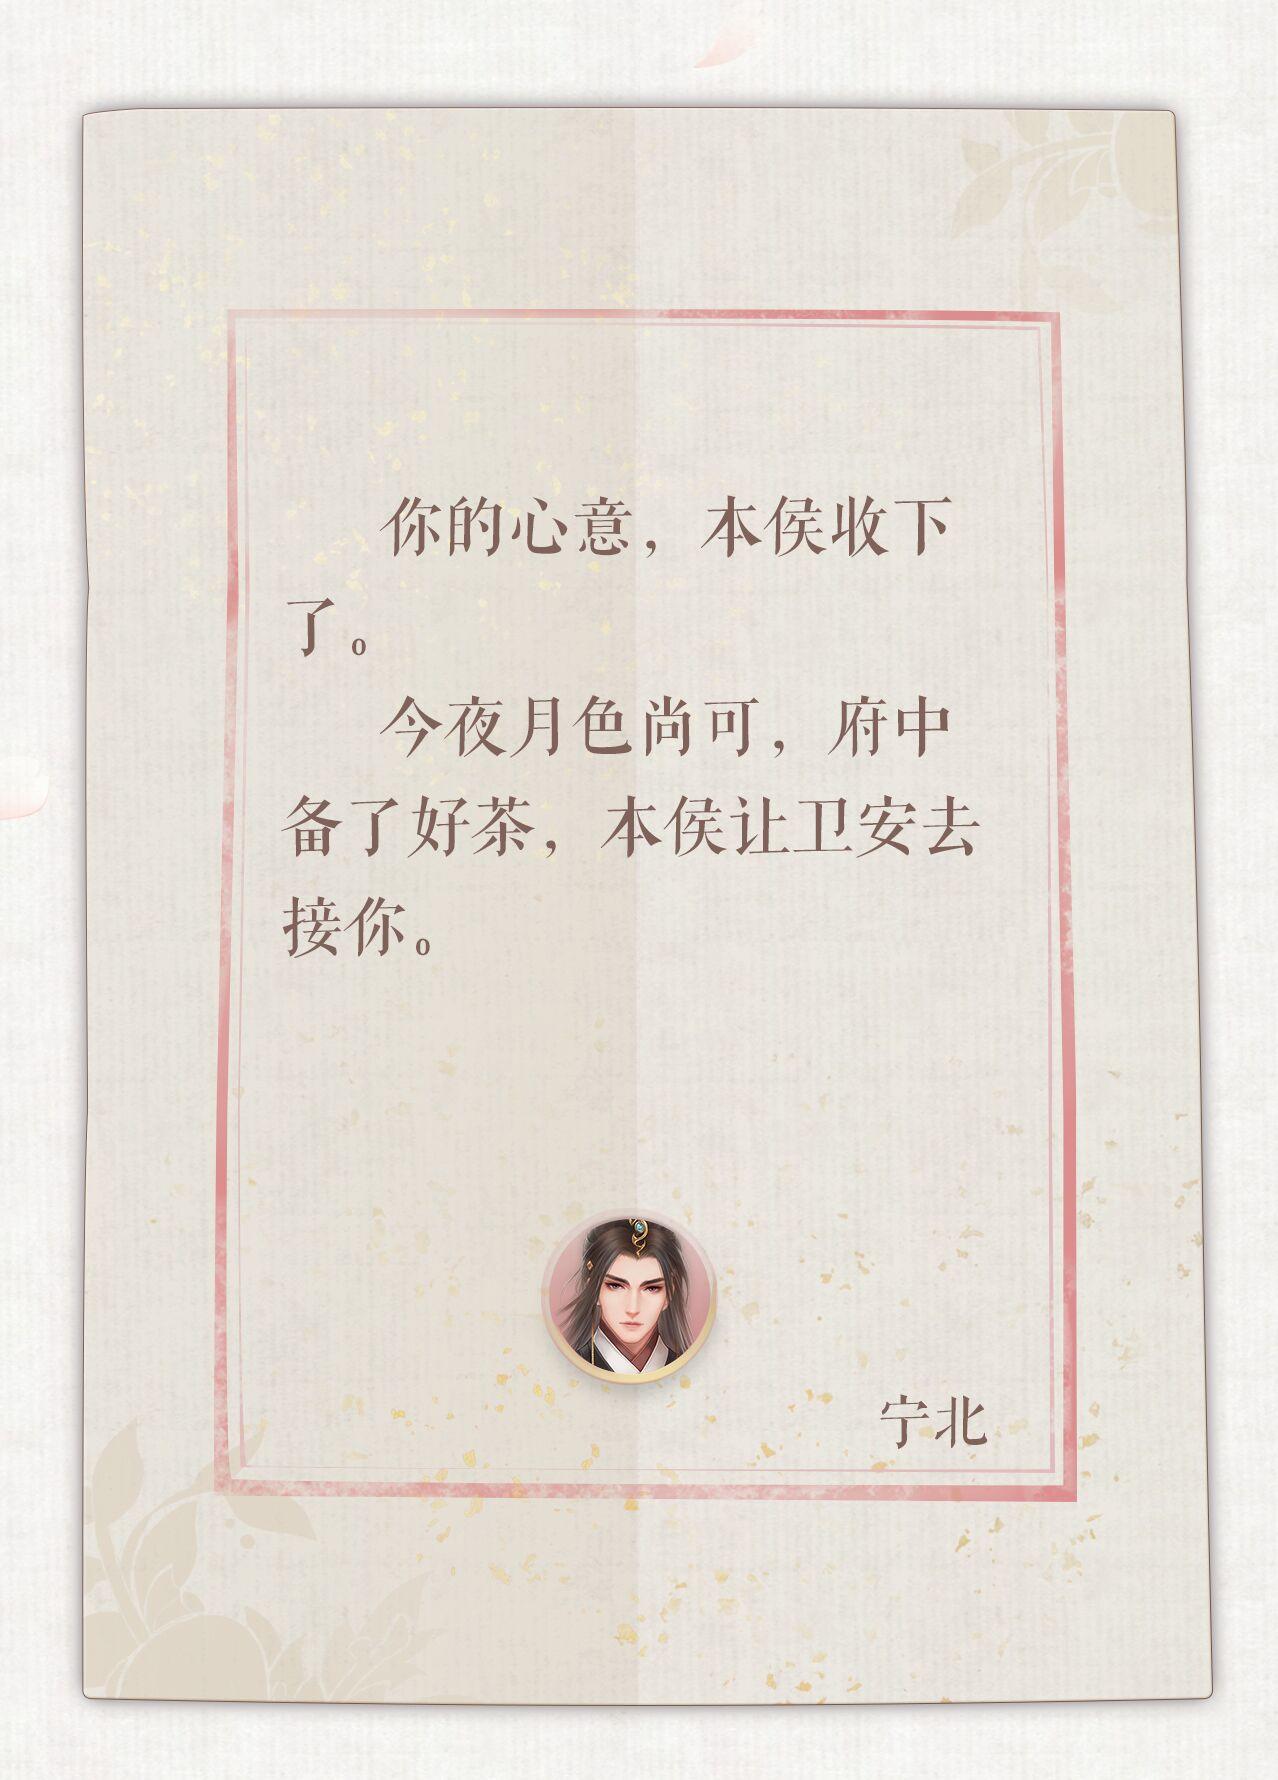 你的心意，本侯收下
了。
今夜月色尚可，府中
备了好茶，本侯让卫安去
接你。
宁北